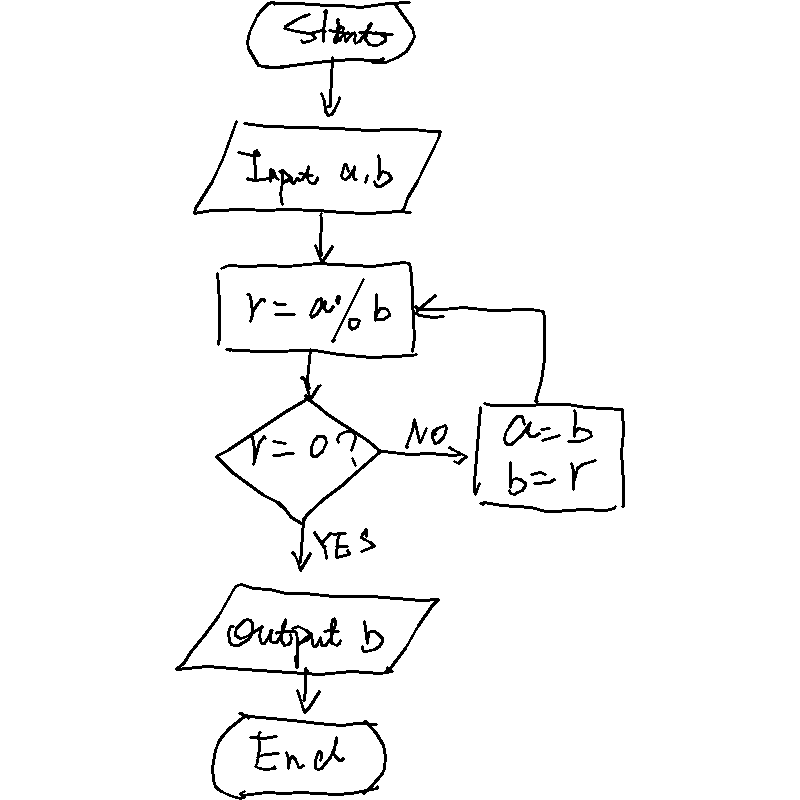 Start
Input a,b
r=a%b
r=0?
NO
a=b
b=r
YES
Output b
End